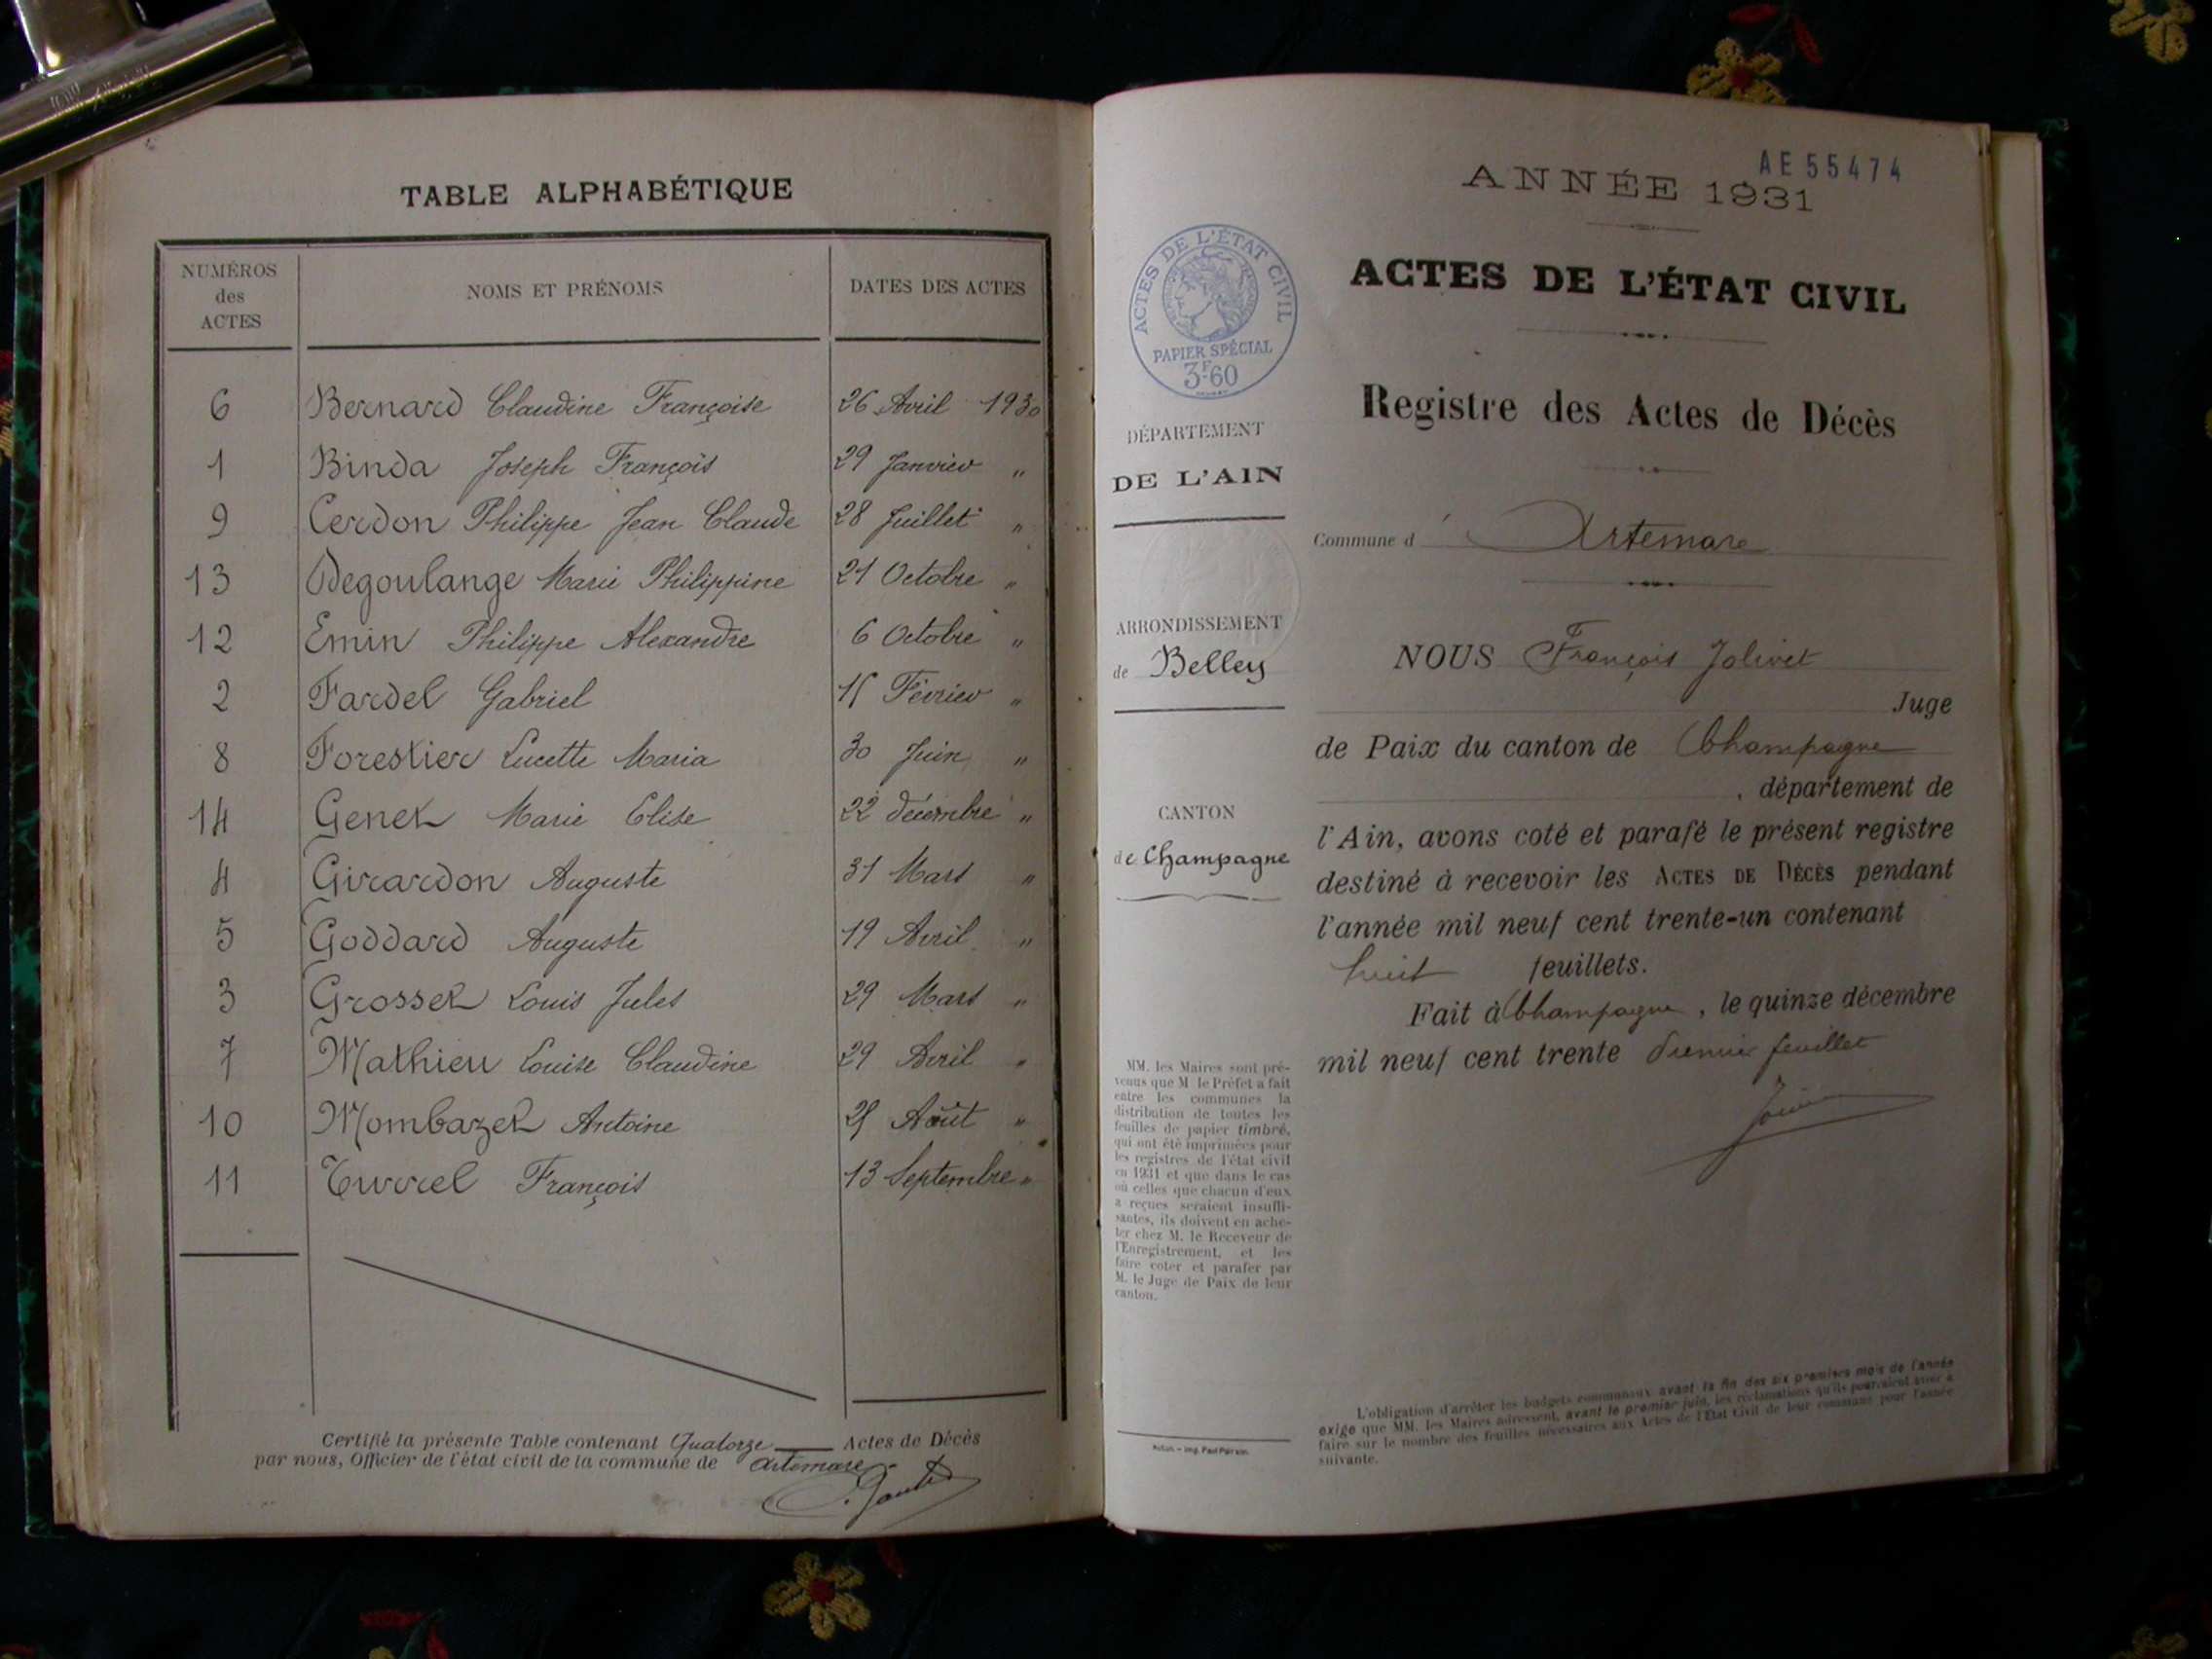 TABLE ALPHABÉTIQUE
NUMÉROS
des
ACTES
NOMS ET PRÉNOMS
DATES DES ACTES
6 Bernard Claudine Françoise 26 Avril 1930
1 Binda Joseph François 29 Janvier "
9 Cerdon Philippe Jean Claude 28 Juillet "
13 Degoulange Marie Philippine 21 Octobre "
12 Emin Philippe Alexandre 6 Octobre "
2 Fardel Gabriel 15 Février "
8 Forestier Lucette Maria 30 Juin "
14 Genet Marie Elise 22 décembre "
4 Girardon Auguste 31 Mars "
5 Goddard Auguste 19 Avril "
3 Grosset Louis Jules 29 Mars "
7 Mathieu Louise Claudine 29 Avril "
10 Mombazet Antoine 25 Août "
11 Turrel François 13 Septembre "
Certifié la présente Table contenant Quatorze Actes de Décès
par nous, Officier de l'état civil de la commune de Artemare
AE 55474
ANNÉE 1931
ACTES DE L'ÉTAT CIVIL
PAPIER SPÉCIAL
3F.60
ACTES DE L'ÉTAT CIVIL
Registre des Actes de Décès
DÉPARTEMENT
DE L'AIN
Commune d' Artemare
ARRONDISSEMENT
de Belley
NOUS François Jolivet
Juge
de Paix du canton de Champagne
, département de
CANTON
de Champagne
l'Ain, avons coté et parafé le présent registre
destiné à recevoir les ACTES DE DÉCÈS pendant
l'année mil neuf cent trente-un contenant
huit feuillets.
Fait à Champagne, le quinze décembre
mil neuf cent trente Premier feuillet
MM. les Maires sont pré-
venus que M. le Préfet a fait
entre les communes la
distribution de toutes les
feuilles de papier timbré,
qui ont été imprimées pour
les registres de l'état civil
en 1931 et que dans le cas
où celles que chacun d'eux
a reçues seraient insuffi-
santes, ils doivent en ache-
ter chez M. le Receveur de
l'Enregistrement, et les
faire coter et parafer par
M. le Juge de Paix de leur
canton.
L'obligation d'arrêter les budgets communaux avant la fin des six premiers mois de l'année
exige que MM. les Maires adressent, avant le premier juin, les réclamations qu'ils pourraient avoir à
faire sur le nombre des feuilles nécessaires aux Actes de l'État Civil de leur commune pour l'année
suivante.